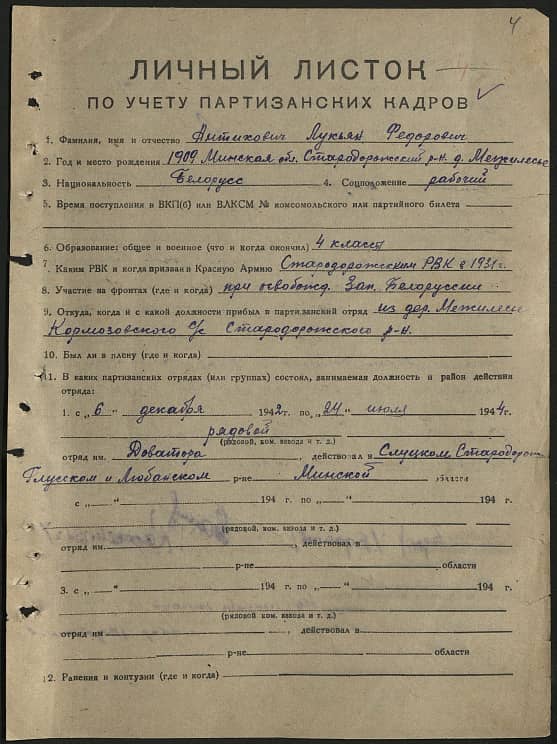 4
ЛИЧНЫЙ ЛИСТОК
ПО УЧЕТУ ПАРТИЗАНСКИХ КАДРОВ
1. Фамилия, имя и отчество Антихович Лукьян Федорович
2. Год и место рождения 1909 Минская обл. Стародорожский р-н д. Межилесье
3. Национальность Белорусс 4. Соцположение рабочий
5. Время поступления в ВКП(б) или ВЛКСМ № комсомольского или партийного билета
6. Образование: общее и военное (что и когда окончил) 4 класса
7. Каким РВК и когда призван в Красную Армию Стародорожским РВК в 1931 г.
8. Участие на фронтах (где и когда) при освобожд. Зап. Белоруссии
9. Откуда, когда и с какой должности прибыл в партизанский отряд из дер. Межилесье
С/с Стародорожского р-н.
10. Был ли в плену (где и когда)
11. В каких партизанских отрядах (или группах) состоял, занимаемая должность и район действия
отряда:
1. с „6" декабря 1942 г. по „24" июля 1944 г.
рядовой
(рядовой, ком. взвода и т. д.)
отряд им. Доватора, действовал в Слуцком, Стародорож
Глусском и Любанском р-не Минской области
с „ " 194 г. по „ " 194 г.
(рядовой, ком. взвода и т. д.)
отряд им. , действовал в
р-не области
3. с „ " 194 г. по „ " 194 г.
(рядовой, ком. взвода и т. д.)
отряд им. , действовал в
р-не области
12. Ранения и контузии (где и когда)